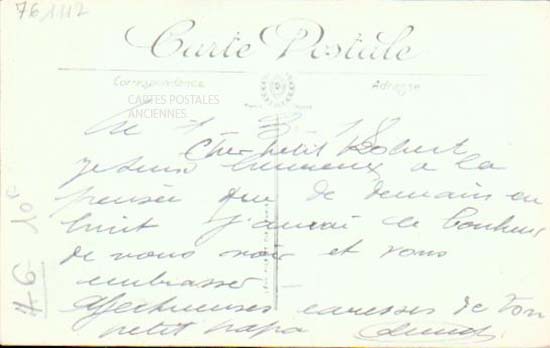 761112
Carte Postale
Correspondance
Adresse
CARTES POSTALES
ANCIENNES
Cher petit Robert
je suis heureux a la
pensée que de demain en
huit j'aurai le bonheur
de vous voir et vous
embrasser
Affectueuses caresses de ton
petit papa